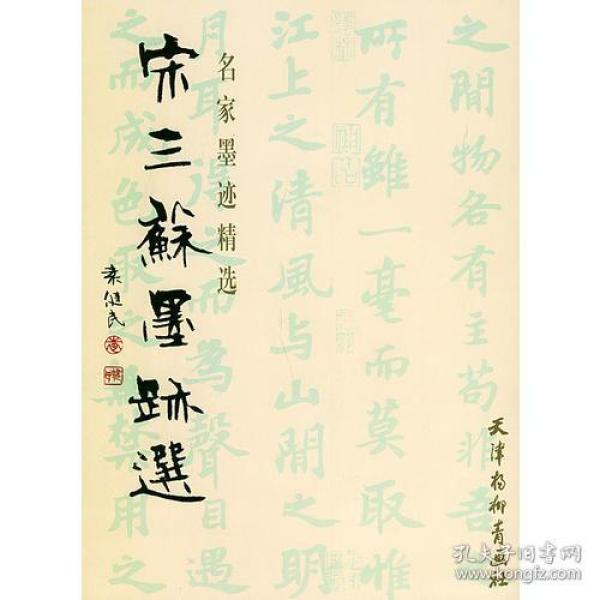 之間物各有主苟非吾
所有雖一毫而莫取惟
江上之清風与山間之明
月耳得之而為聲目遇
之而成色取之無禁用之
名家墨迹精选
宋三蘇墨跡選
袁健民
天津杨柳青画社
孔夫子旧书网
www.kongfz.com